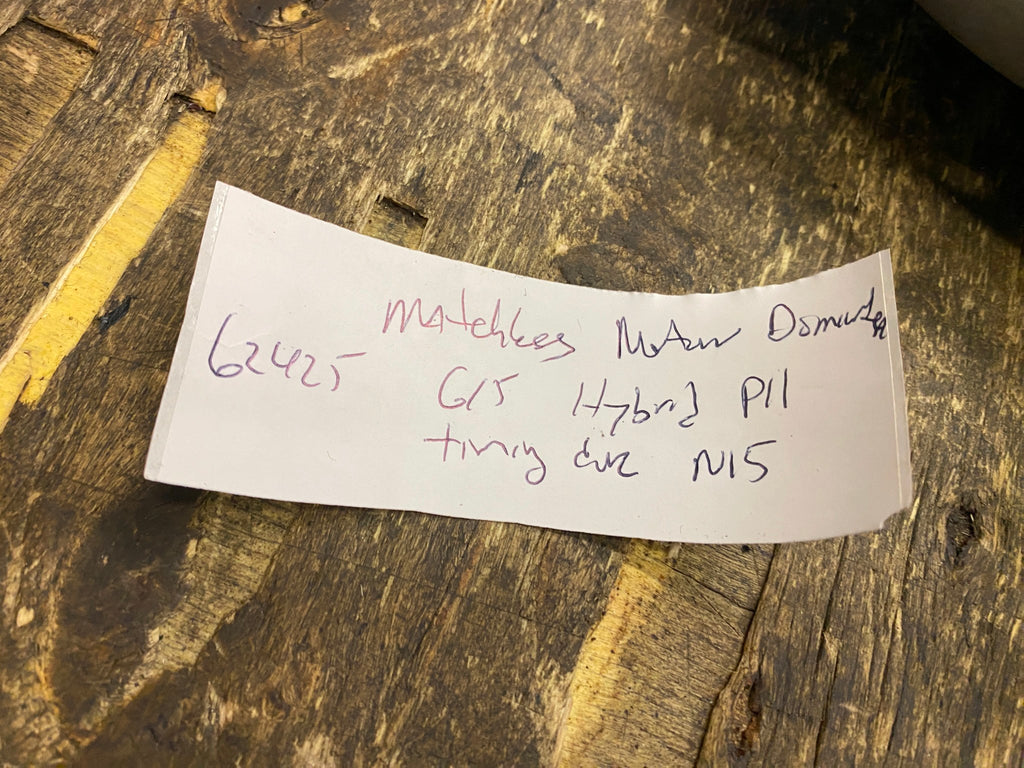 Matchless Norton Dominator
62425 G15 Hybrid P11
timing cover N15